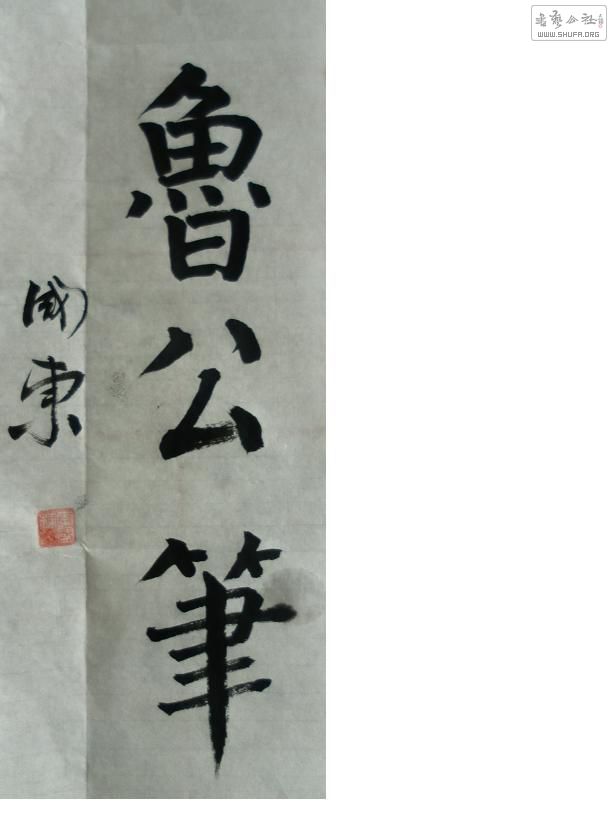 魯公筆
國東
書藝公社
WWW.SHUFA.ORG